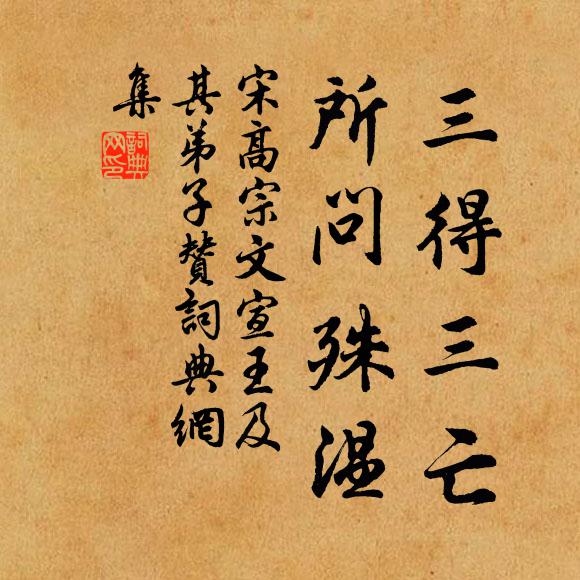 三得三亡
所問殊温
宋高宗文宣王及
其弟子赞詞典網
集
詞典
网印